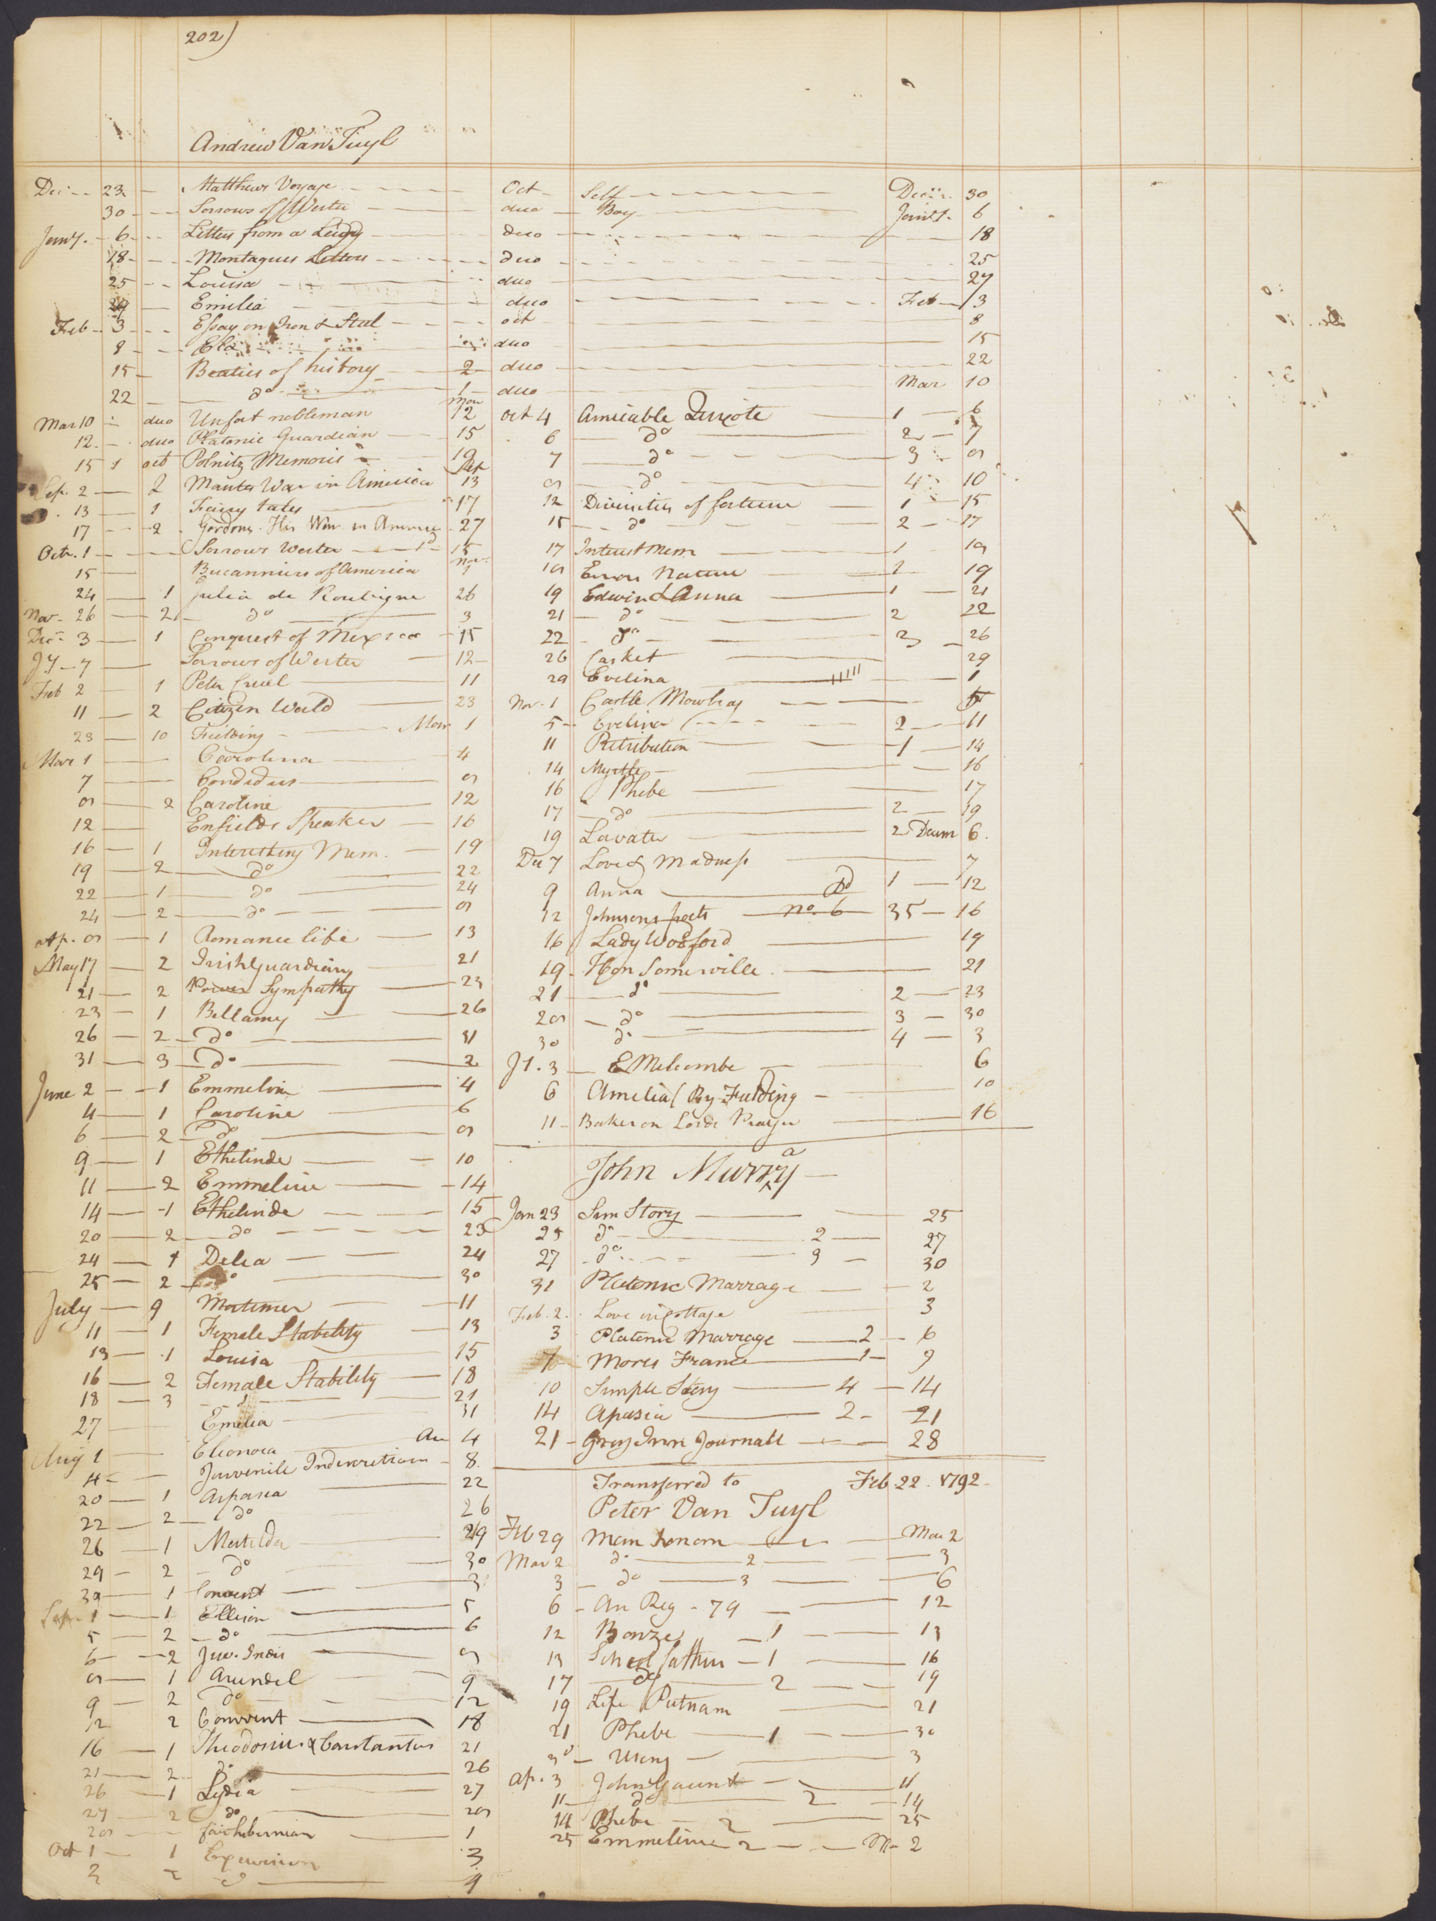 202)
Andrew Van Tuyl
Dec 23 Matthews Voyage Oct Self Decr 30
30 Sorrows of Werter duo Boy Jany. 6
Jany. 6 Letters from a Lady duo 18
18 Montagues Letters duo 25
25 Louisa duo 27
Emilia duo Feb 3
Feb 3 Essay on Iron & Steel oct 8
8 duo 15
15 Beaties of history 2 duo 22
22 do 1 duo Mar 10
Mar 10 duo Unfort nobleman 12
12 duo Platonic Guardian 15
15 1 oct Polnitz Memoris 19
Sep. 2 2 War in America 13
13 1 Fairy tales 17
17 2 Gordons His War in America 27
Octr. 1 Sorrows Werter 15
15 Bucanniers of America Nov. 1
24 1 Julia de Roubigne 26
Nov. 26 2 do 3
Decr 3 1 Conquest of Mexico 15
Jy 7 Sorrows of Werter 12
Feb 2 1 Peter 11
11 2 Citizen World 23
23 10 Fielding Mar 1
Mar 1 Carolina 4
7 Candidus 8
8 2 Caroline 12
12 Enfields Speaker 16
16 1 Interesting Mem. 19
19 2 do 22
22 1 do 24
24 2 do 8
Ap. 8 1 Romance life 13
May 17 2 Irish Guardian 21
21 2 Power Sympathy 23
23 1 Bellamy 26
26 2 do 31
31 3 do 2
June 2 1 Emmeline 4
4 1 Caroline 6
6 2 do 8
9 1 Ethelinde 10
11 2 Emmeline 14
14 1 Ethelinde 15
20 2 do 23
24 1 Delia 24
25 2 do 30
July 9 Mortimer 11
11 1 Female Stability 13
13 1 Louisa 15
16 2 Female Stability 18
18 3 21
27 Emelia 31
Aug 1 Eleonora Au 4
4 Juvenile Indiscretions 8
20 1 Aspasia 22
22 2 do 26
26 1 Matilda 29
29 2 do 30
30 1 Convent 3
Sep. 1 1 Ellison 5
5 2 do 6
6 2 Juv. Indis 8
8 1 Arundel 9
9 2 do 12
12 2 Convent 18
16 1 Theodosius & Constantus 21
21 2 do 26
26 1 Lydia 27
27 2 do 28
28 fair hibernian 1
Oct 1 1 Excursion 3
3 2 9
oct 4 Amicable Quixote 1 6
6 do 2 7
7 do 3 8
8 do 4 10
12 Divinities of fortune 1 15
15 do 2 17
17 Interest Mem 1 19
18 Errors Nature 2 19
19 Edwin & Anna 1 21
21 do 2 22
22 do 3 26
26 Casket 29
29 Evelina 1
Nov. 1 Castle Mowbray 5
5 Evelina 2 11
11 Retribution 1 14
14 Myrtle 16
16 Phebe 17
17 do 2 19
19 Lavater 2 Decem 6.
Dec 7 Love & Madness 7
9 Anna 1 12
12 Johnsons poets No. 6 35 16
16 Lady 19
19 Hon Somerville 21
21 do 2 23
28 do 3 30
30 do 4 3
Jy. 3 E Melcombe 6
6 Amelia (By Fielding 10
11 Baker on Lords Prayer 16
John Murray
Jan 23 Sim Story 25
25 do 2 27
27 do 3 30
31 Platonic Marrage 2
Feb. 2. Love in Cottage 3
3 Platonic Marrage 2 6
7 Mores France 1 9
10 Simple Story 4 14
14 Apasia 2 21
21 Grays Inn Journall 28
Transferred to Feb 22. 1792.
Peter Van Tuyl
Feb 29 Man honor Mar 2
Mar 2 do 2 3
3 do 3 6
6 An Reg 79 12
12 Bonze 1 13
13 School fathers 1 16
17 do 2 19
19 Life Putnam 21
21 Phebe 1 30
30 3
Ap. 3 John Gaunt 11
11 do 2 14
14 Phebe 2 25
25 Emmeline 2 M 2